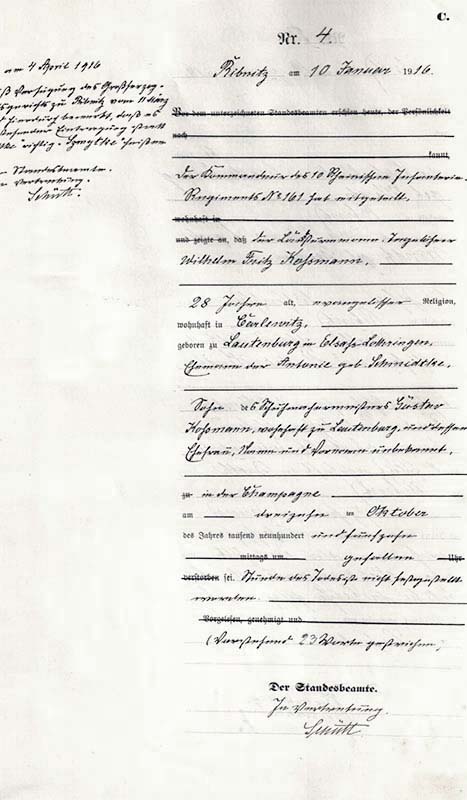 C.
Nr. 4.
Ribnitz am 10 Januar 1916.
am 4 April 1916
Verfügung des Großherzog.
gerichts zu Ribnitz vom 11 März
hierdurch bemerkt, daß es
Eintragung statt
richtig "Smytke" heißen
Standesbeamte.
Vertretung.
Schütt.
Vor dem unterzeichneten Standesbeamten erschien heute, der Persönlichkeit
nach
kannt,
Der Kommandeur des 10 Rheinischen Infanterie
Regiments No 161 hat mitgeteilt,
wohnhaft in
und zeigte an, daß der Landsturmmann, Tagelöhner
Wilhelm Fritz Kossmann,
28 Jahre alt, evangelischer Religion,
wohnhaft in Carlewitz,
geboren zu Lautenburg in Elsaß-Lothringen,
Ehemann der Antonie geb. Schmidtke,
Sohn des Schuhmachermeisters Gustav
Kossmann, wohnhaft zu Lautenburg, und dessen
Ehefrau, Name und Vorname unbekannt,
zu in der Champagne
am dreizehn ten Oktober
des Jahres tausend neunhundert und fünfzehn
mittags um gefallen Uhr
verstorben sei. Stunde des Todes ist nicht festgestellt
worden.
Vorgelesen, genehmigt und
(Vorstehend 23 Worte gestrichen)
Der Standesbeamte.
In Vertretung.
Schütt